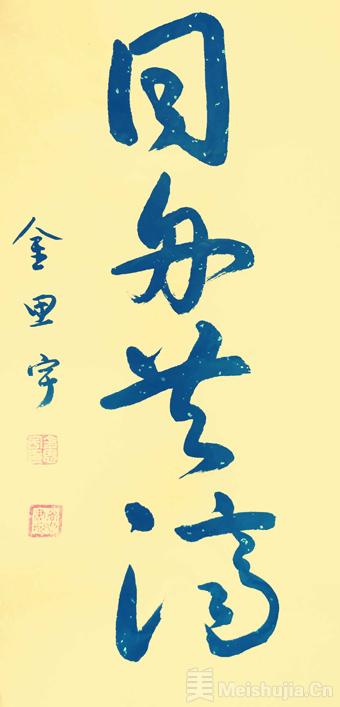 同舟共济
金思宇
美 Meishujia.Cn